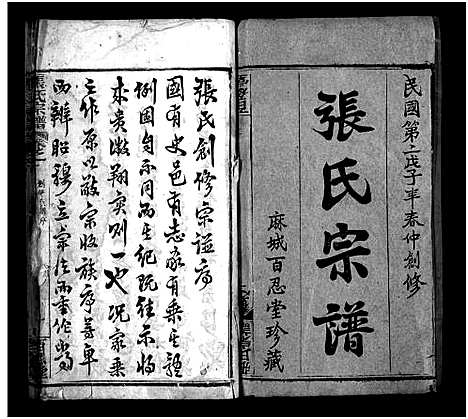 民國第二戊子年春仲創修
張氏宗譜
麻城百忍堂珍藏
張氏創修宗譜序
國有史邑有志家有乘其體
例固自不同而其紀既往示將
來貴激翔實則一也況家乘
之作原以敬宗收族序尊卑
而辨昭穆立宗法而重作